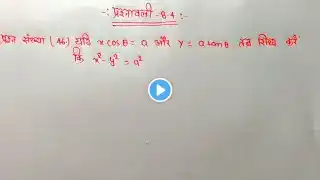 -: प्रश्नावली - 8.4 :-
प्रश्न संख्या (46) यदि x cosθ = a और y = a tanθ तब सिद्ध करें
कि x² - y² = a²